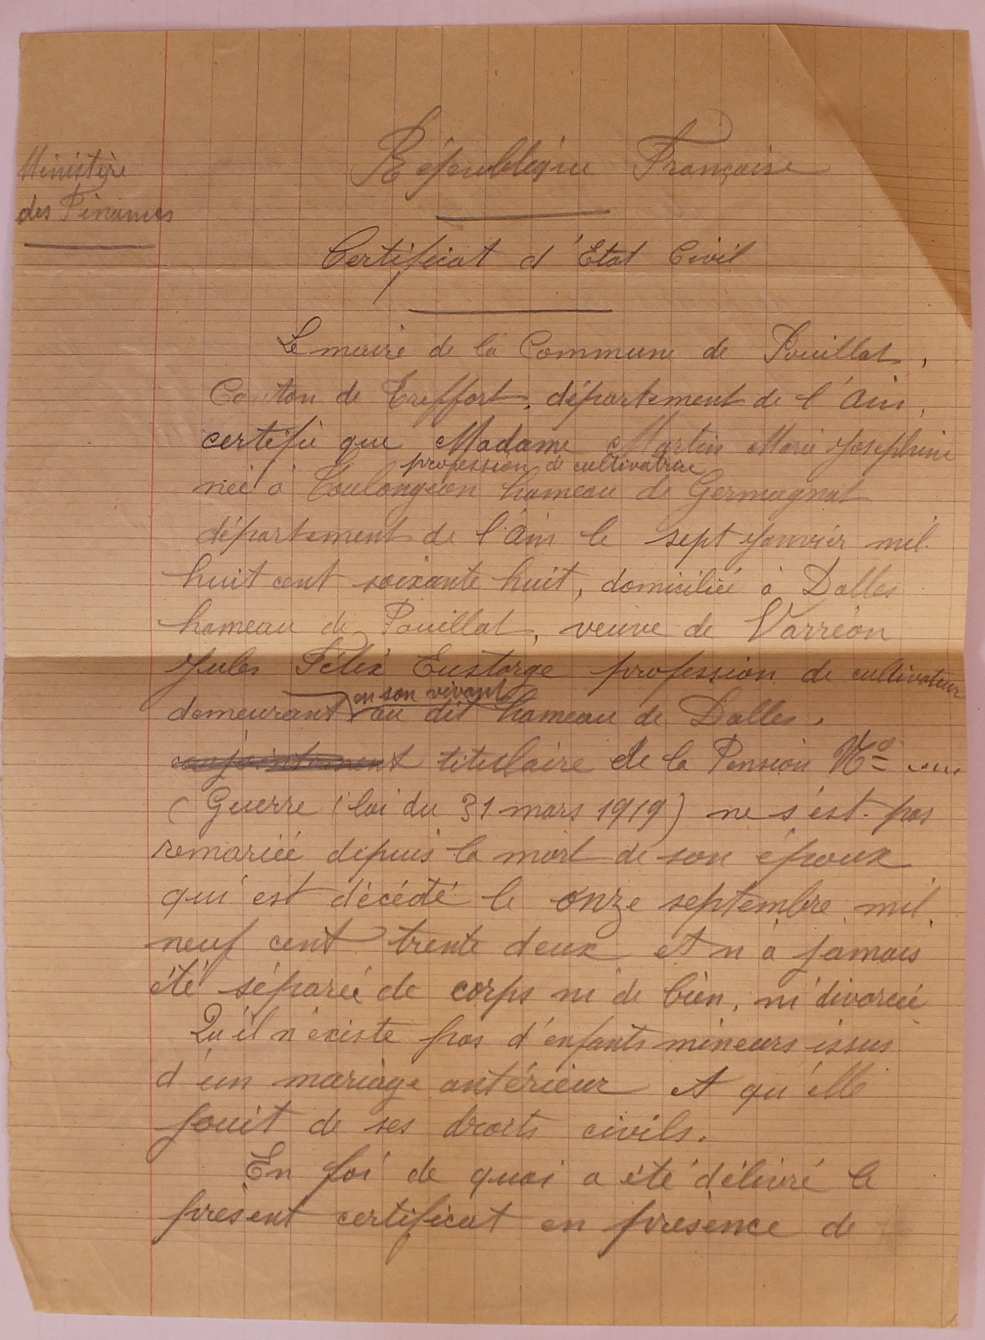 Ministère
des Finances
République Française
Certificat d'Etat Civil
Le maire de la Commune de Pouillat,
Canton de Treffort, département de l'Ain,
certifie que Madame Martin Marie Joséphine
profession de cultivatrice
née à Toulongeon hameau de Germagnat
département de l'Ain le sept janvier mil
huit cent soixante huit, domiciliée à Dalles
hameau de Pouillat, veuve de Varréon
Jules Félix Eustorge profession de cultivateur
en son vivant
demeurant au dit hameau de Dalles.
conjointement titulaire de la Pension No
(Guerre (loi du 31 mars 1919) ne s'est pas
remariée depuis la mort de son époux
qui est décédé le onze septembre mil
neuf cent trente deux et n'a jamais
été séparée de corps ni de bien, ni divorcée
Qu'il n'existe pas d'enfants mineurs issus
d'un mariage antérieur et qu'elle
jouit de ses droits civils.
En foi de quoi a été délivré le
présent certificat en présence de